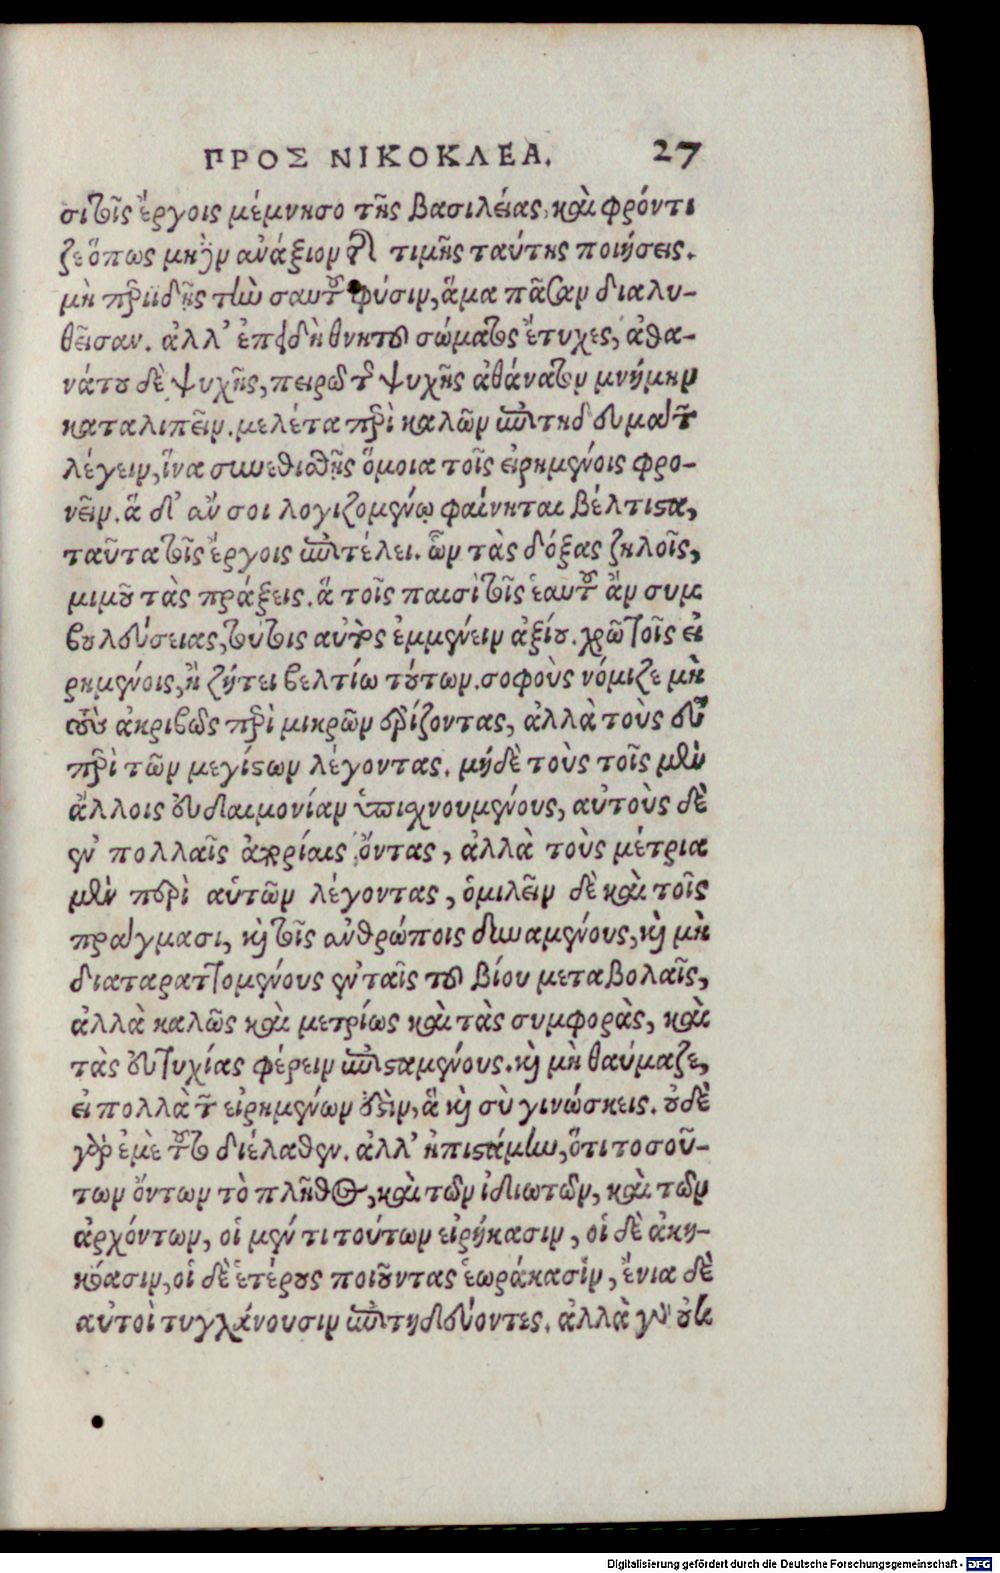 ΠΡΟΣ ΝΙΚΟΚΛΕΑ. 27
σι τοῖς ἔργοις μέμνησο τῆς βασιλείας, καὶ φρόντι
ζε ὅπως μηδὲν ἀνάξιον τῆς τιμῆς ταύτης ποιήσεις.
μὴ περιίδῃς τὴν σαυτοῦ φύσιν, ἅμα πᾶσαν διαλυ-
θεῖσαν. ἀλλ' ἐπειδὴ θνητοῦ σώματος ἔτυχες, ἀθα-
νάτου δὲ ψυχῆς, πειρῶ τῆς ψυχῆς ἀθάνατον μνήμην
καταλιπεῖν. μελέτα περὶ καλῶν ἐπιτηδευμάτων
λέγειν, ἵνα συνεθισθῇς ὅμοια τοῖς εἰρημένοις φρο-
νεῖν. ἃ δ' ἄν σοι λογιζομένῳ φαίνηται βέλτιστα,
ταῦτα τοῖς ἔργοις ἐπιτέλει. ὧν τὰς δόξας ζηλοῖς,
μιμοῦ τὰς πράξεις. ἃ τοῖς παισὶ τοῖς ἑαυτοῦ ἂν συμ
βουλεύσειας, τούτοις αὐτὸς ἐμμένειν ἀξίου. χρῶ τοῖς εἰ
ρημένοις, ἢ ζήτει βελτίω τούτων. σοφοὺς νόμιζε μὴ
τοὺς ἀκριβῶς περὶ μικρῶν ἐρίζοντας, ἀλλὰ τοὺς εὖ
περὶ τῶν μεγίστων λέγοντας. μηδὲ τοὺς τοῖς μὲν
ἄλλοις εὐδαιμονίαν ὑπισχνουμένους, αὐτοὺς δὲ
ἐν πολλαῖς ἀπορίαις ὄντας, ἀλλὰ τοὺς μέτρια
μὲν περὶ αὑτῶν λέγοντας, ὁμιλεῖν δὲ καὶ τοῖς
πράγμασι, καὶ τοῖς ἀνθρώποις δυναμένους, καὶ μὴ
διαταραττομένους ἐν ταῖς τοῦ βίου μεταβολαῖς,
ἀλλὰ καλῶς καὶ μετρίως καὶ τὰς συμφορὰς, καὶ
τὰς εὐτυχίας φέρειν ἐπισταμένους. καὶ μὴ θαύμαζε,
εἰ πολλὰ τῶν εἰρημένων ἐστὶν, ἃ καὶ σὺ γινώσκεις. οὐδὲ
γὰρ ἐμὲ τοῦτο διέλαθεν. ἀλλ' ἠπιστάμην, ὅτι τοσού-
των ὄντων τὸ πλῆθος, καὶ τῶν ἰδιωτῶν, καὶ τῶν
ἀρχόντων, οἱ μέν τι τούτων εἰρήκασιν, οἱ δὲ ἀκη-
κόασιν, οἱ δὲ ἑτέρους ποιοῦντας ἑωράκασιν, ἔνια δὲ
αὐτοὶ τυγχάνουσιν ἐπιτηδεύοντες. ἀλλὰ γὰρ οὐκ
Digitalisierung gefördert durch die Deutsche Forschungsgemeinschaft - DFG